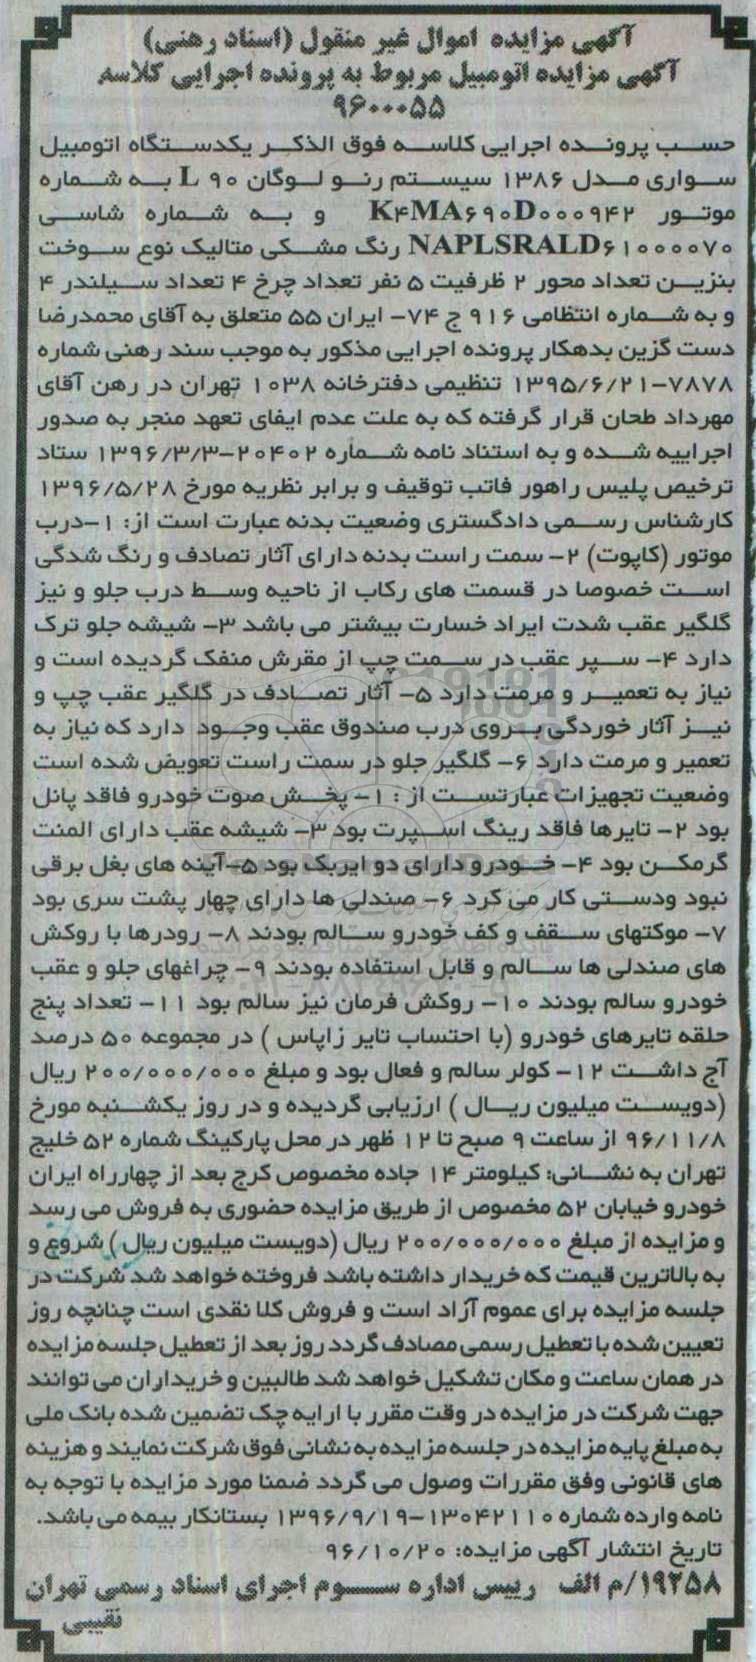 آگهی مزایده اموال غیر منقول (اسناد رهنی)
آگهی مزایده اتومبیل مربوط به پرونده اجرایی کلاسه
۹۶۰۰۰۵۵
حسب پرونده اجرایی کلاسه فوق الذکر یکدستگاه اتومبیل
سواری مدل ۱۳۸۶ سیستم رنو لوگان L ۹۰ به شماره
موتور K۴MA۶۹۰D۰۰۰۹۴۲ و به شماره شاسی
NAPLSRALD۶۱۰۰۰۰۷۰ رنگ مشکی متالیک نوع سوخت
بنزین تعداد محور ۲ ظرفیت ۵ نفر تعداد چرخ ۴ تعداد سیلندر ۴
و به شماره انتظامی ۹۱۶ ج ۷۴- ایران ۵۵ متعلق به آقای محمدرضا
دست گزین بدهکار پرونده اجرایی مذکور به موجب سند رهنی شماره
۷۸۷۸-۱۳۹۵/۶/۲۱ تنظیمی دفترخانه ۱۰۳۸ تهران در رهن آقای
مهرداد طحان قرار گرفته که به علت عدم ایفای تعهد منجر به صدور
اجراییه شده و به استناد نامه شماره ۲۰۴۰۲-۱۳۹۶/۳/۳ ستاد
ترخیص پلیس راهور فاتب توقیف و برابر نظریه مورخ ۱۳۹۶/۵/۲۸
کارشناس رسمی دادگستری وضعیت بدنه عبارت است از: ۱-درب
موتور (کاپوت) ۲- سمت راست بدنه دارای آثار تصادف و رنگ شدگی
است خصوصا در قسمت های رکاب از ناحیه وسط درب جلو و نیز
گلگیر عقب شدت ایراد خسارت بیشتر می باشد ۳- شیشه جلو ترک
دارد ۴- سپر عقب در سمت چپ از مقرش منفک گردیده است و
نیاز به تعمیر و مرمت دارد ۵- آثار تصادف در گلگیر عقب چپ و
نیز آثار خوردگی بروی درب صندوق عقب وجود دارد که نیاز به
تعمیر و مرمت دارد ۶- گلگیر جلو در سمت راست تعویض شده است
وضعیت تجهیزات عبارتست از : ۱- پخش صوت خودرو فاقد پانل
بود ۲- تایرها فاقد رینگ اسپرت بود ۳- شیشه عقب دارای المنت
گرمکن بود ۴- خودرو دارای دو ایربک بود ۵-آینه های بغل برقی
نبود ودستی کار می کرد ۶- صندلی ها دارای چهار پشت سری بود
۷- موکتهای سقف و کف خودرو سالم بودند ۸- رودرها با روکش
های صندلی ها سالم و قابل استفاده بودند ۹- چراغهای جلو و عقب
خودرو سالم بودند ۱۰- روکش فرمان نیز سالم بود ۱۱- تعداد پنج
حلقه تایرهای خودرو (با احتساب تایر زاپاس ) در مجموعه ۵۰ درصد
آج داشت ۱۲- کولر سالم و فعال بود و مبلغ ۲۰۰/۰۰۰/۰۰۰ ریال
(دویست میلیون ریال ) ارزیابی گردیده و در روز یکشنبه مورخ
۹۶/۱۱/۸ از ساعت ۹ صبح تا ۱۲ ظهر در محل پارکینگ شماره ۵۲ خلیج
تهران به نشانی: کیلومتر ۱۴ جاده مخصوص کرج بعد از چهارراه ایران
خودرو خیابان ۵۲ مخصوص از طریق مزایده حضوری به فروش می رسد
و مزایده از مبلغ ۲۰۰/۰۰۰/۰۰۰ ریال (دویست میلیون ریال ) شروع و
به بالاترین قیمت که خریدار داشته باشد فروخته خواهد شد شرکت در
جلسه مزایده برای عموم آزاد است و فروش کلا نقدی است چنانچه روز
تعیین شده با تعطیل رسمی مصادف گردد روز بعد از تعطیل جلسه مزایده
در همان ساعت و مکان تشکیل خواهد شد طالبین و خریداران می توانند
جهت شرکت در مزایده در وقت مقرر با ارایه چک تضمین شده بانک ملی
به مبلغ پایه مزایده در جلسه مزایده به نشانی فوق شرکت نمایند و هزینه
های قانونی وفق مقررات وصول می گردد ضمنا مورد مزایده با توجه به
نامه وارده شماره ۱۳۰۴۲۱۱۰-۱۳۹۶/۹/۱۹ بستانکار بیمه می باشد.
تاریخ انتشار آگهی مزایده: ۹۶/۱۰/۲۰
۱۹۲۵۸/م الف رییس اداره سوم اجرای اسناد رسمی تهران
نقیبی